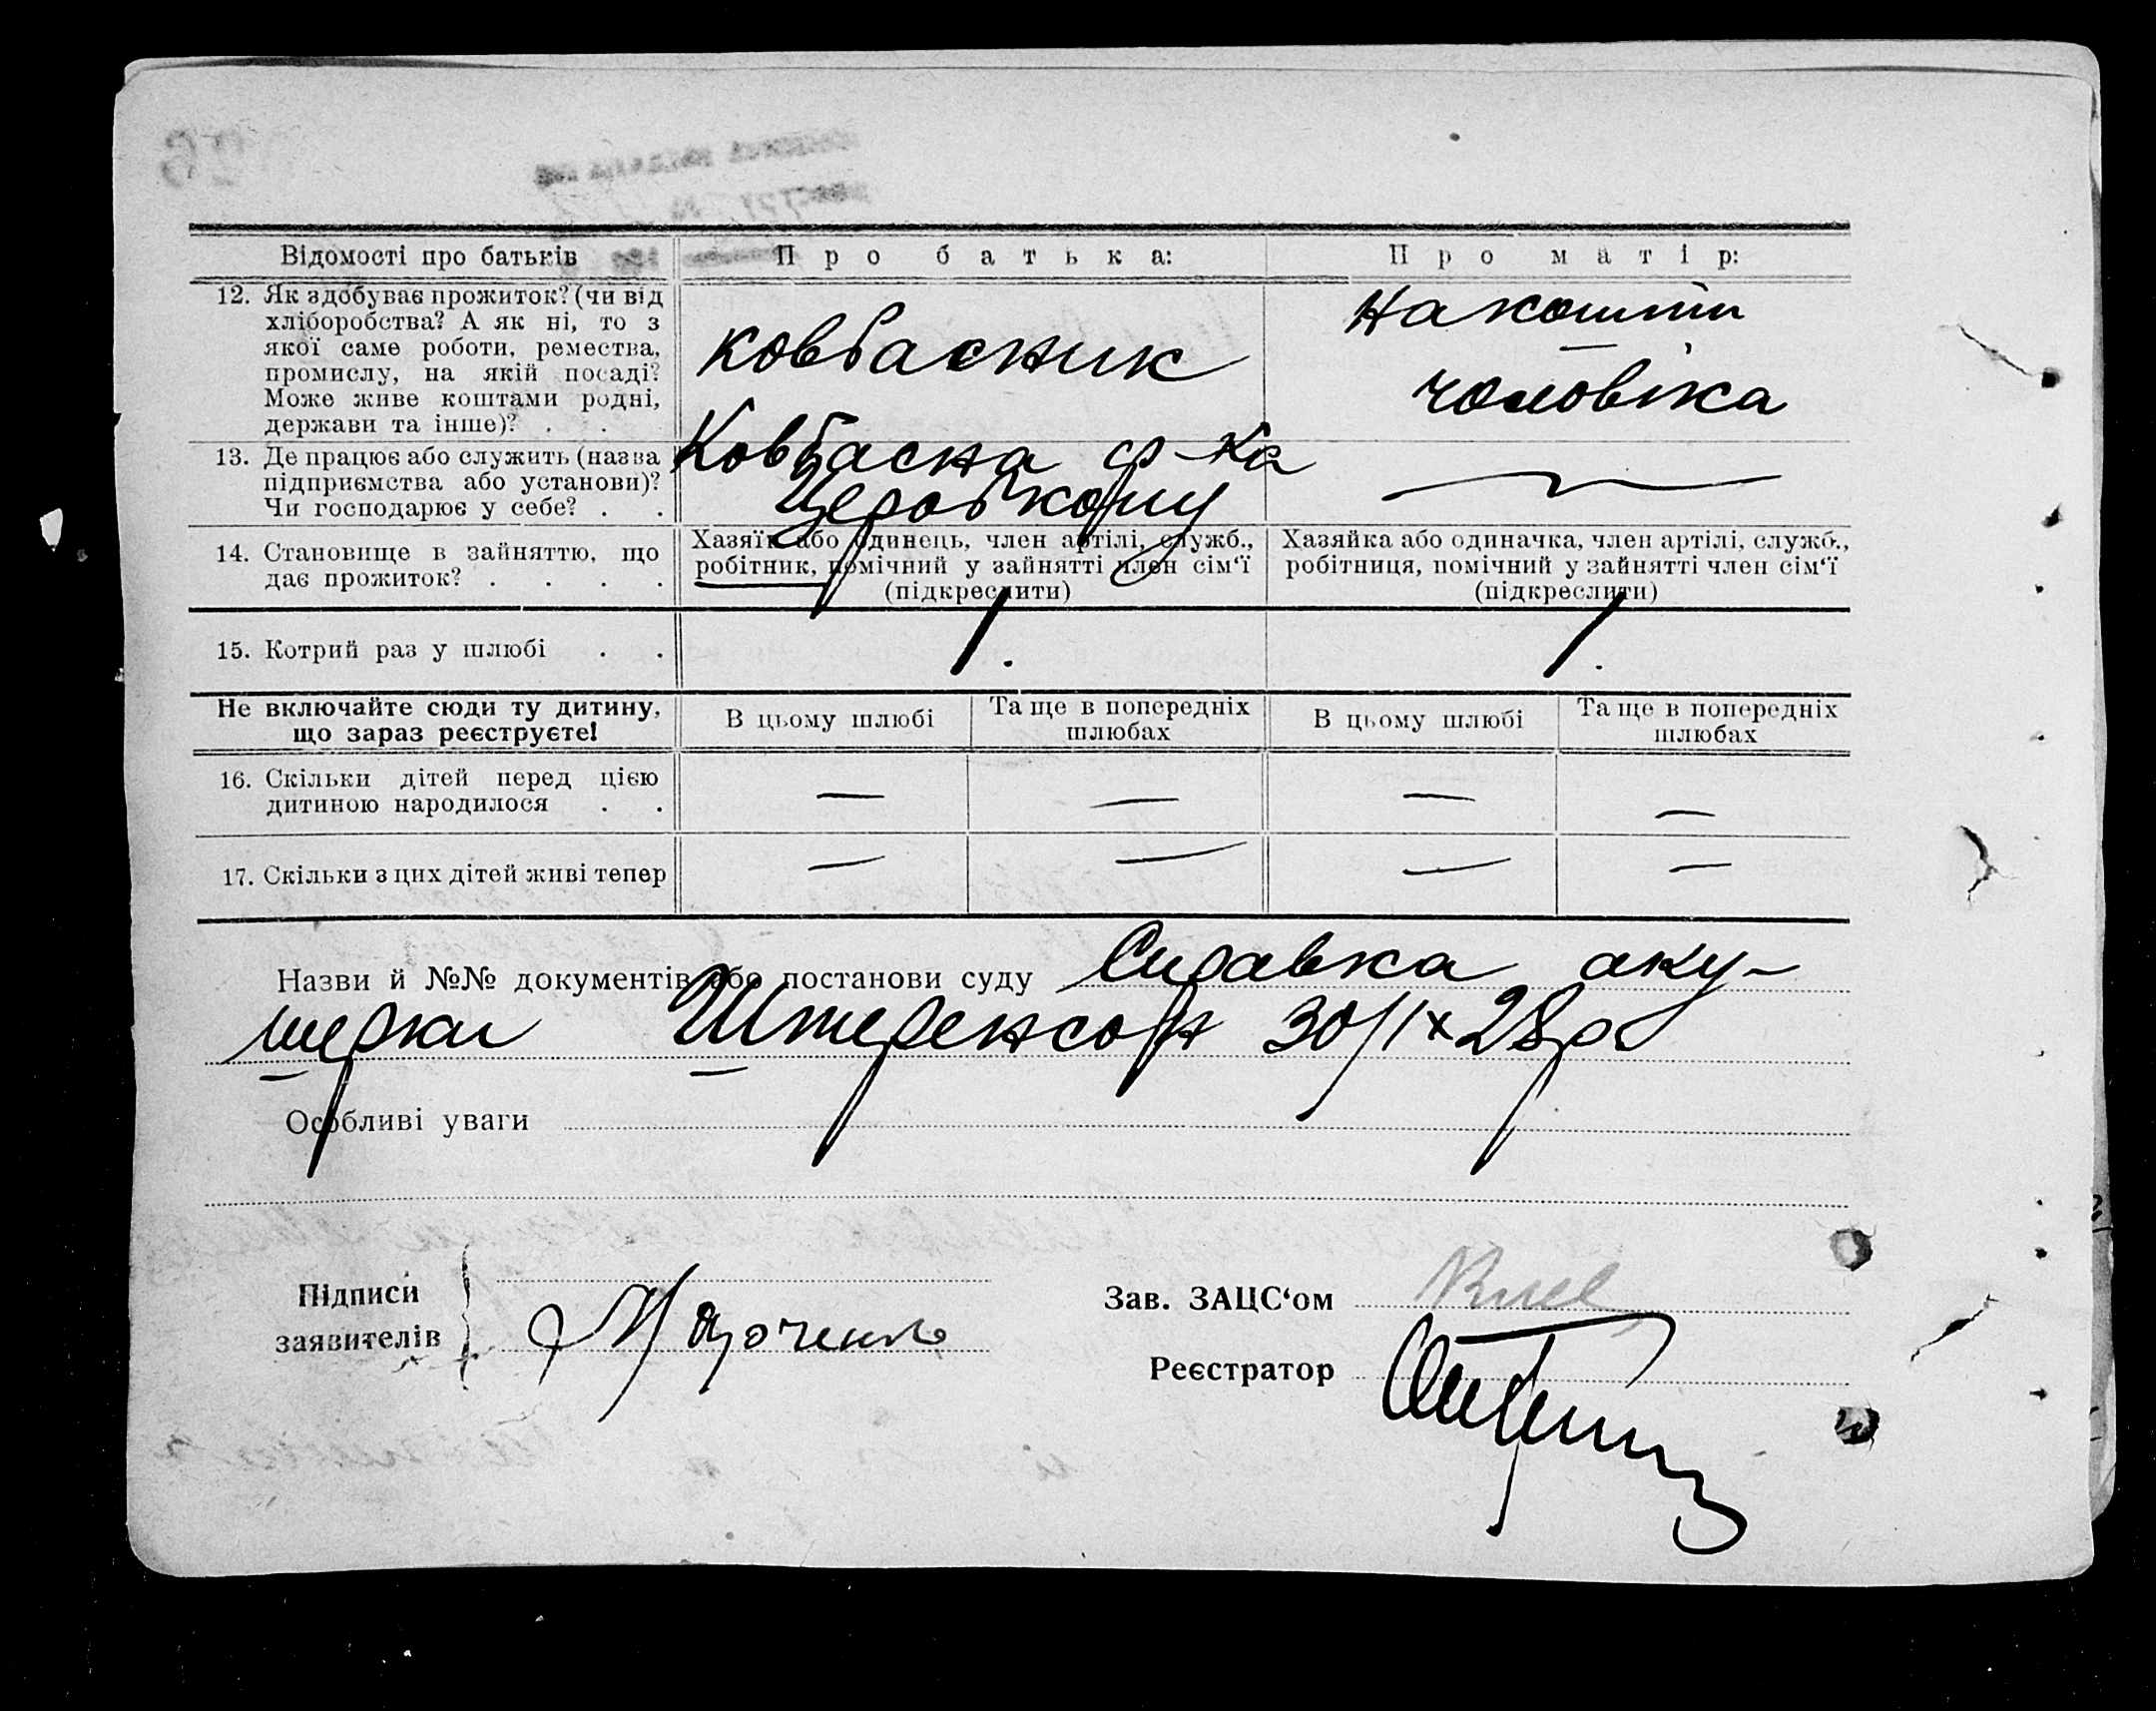 Відомості про батьків
Про батька:
Про матір:
12. Як здобуває прожиток? (чи від
хліборобства? А як ні, то з
якої саме роботи, ремества,
промислу, на якій посаді?
Може живе коштами родні,
держави та інше)? . .
ковбасник
на кошти
чоловіка
13. Де працює або служить (назва
підприємства або установи)?
Чи господарює у себе? . .
Ковбасна ф-ка
Церобкопу
—
14. Становище в зайняттю, що
дає прожиток? . . . .
Хазяїн або одинець, член артілі, служб.,
робітник, помічний у зайнятті член сім‘ї
(підкреслити)
Хазяйка або одиначка, член артілі, служб.,
робітниця, помічний у зайнятті член сім‘ї
(підкреслити)
15. Котрий раз у шлюбі . .
1.
1.
Не включайте сюди ту дитину,
що зараз реєструєте!
В цьому шлюбі
Та ще в попередніх
шлюбах
В цьому шлюбі
Та ще в попередніх
шлюбах
16. Скільки дітей перед цією
дитиною народилося . .
— — — —
17. Скільки з цих дітей живі тепер
— — — —
Назви й №№ документів або постанови суду Справка аку-
шерки Штеренсон 30/IX 28р
Особливі уваги
Підписи
заявителів
Зав. ЗАЦС‘ом
Реєстратор